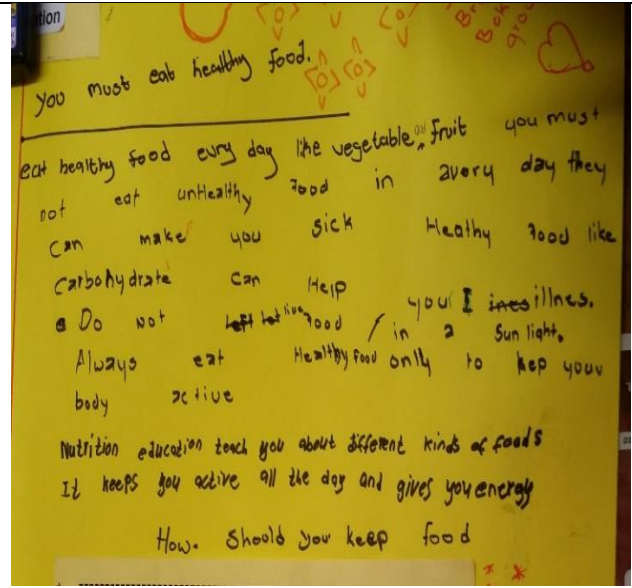 tion
you must eat healthy food.
eat healthy food evry day like vegetable, and fruit you must
not eat unHealthy food in avery day they
can make you sick Heathy food like
carbohydrate can Help you illnes.
Do not live food in a Sun light.
Always eat Healthy food only to kep your
body active
Nutrition education teach you about different kinds of foods
It keeps you active all the day and gives you energy
How. Should you keep food